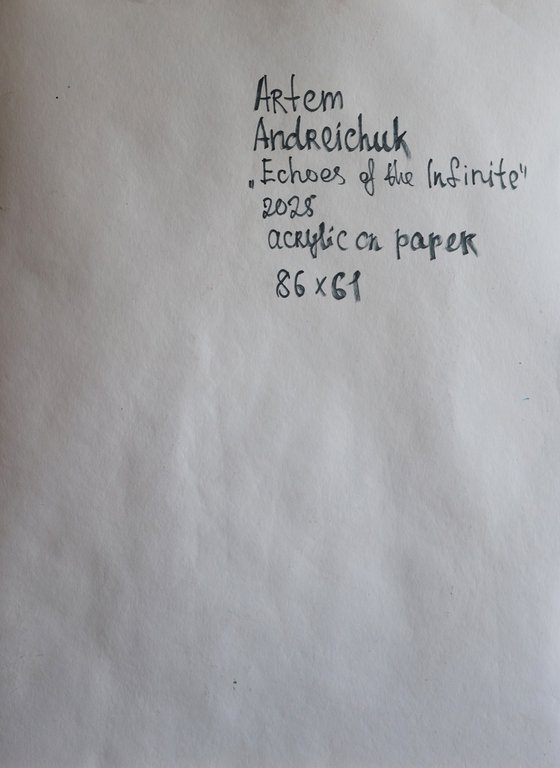 Artem
Andreichuk
„Echoes of the Infinite"
2025
acrylic on paper
86x61